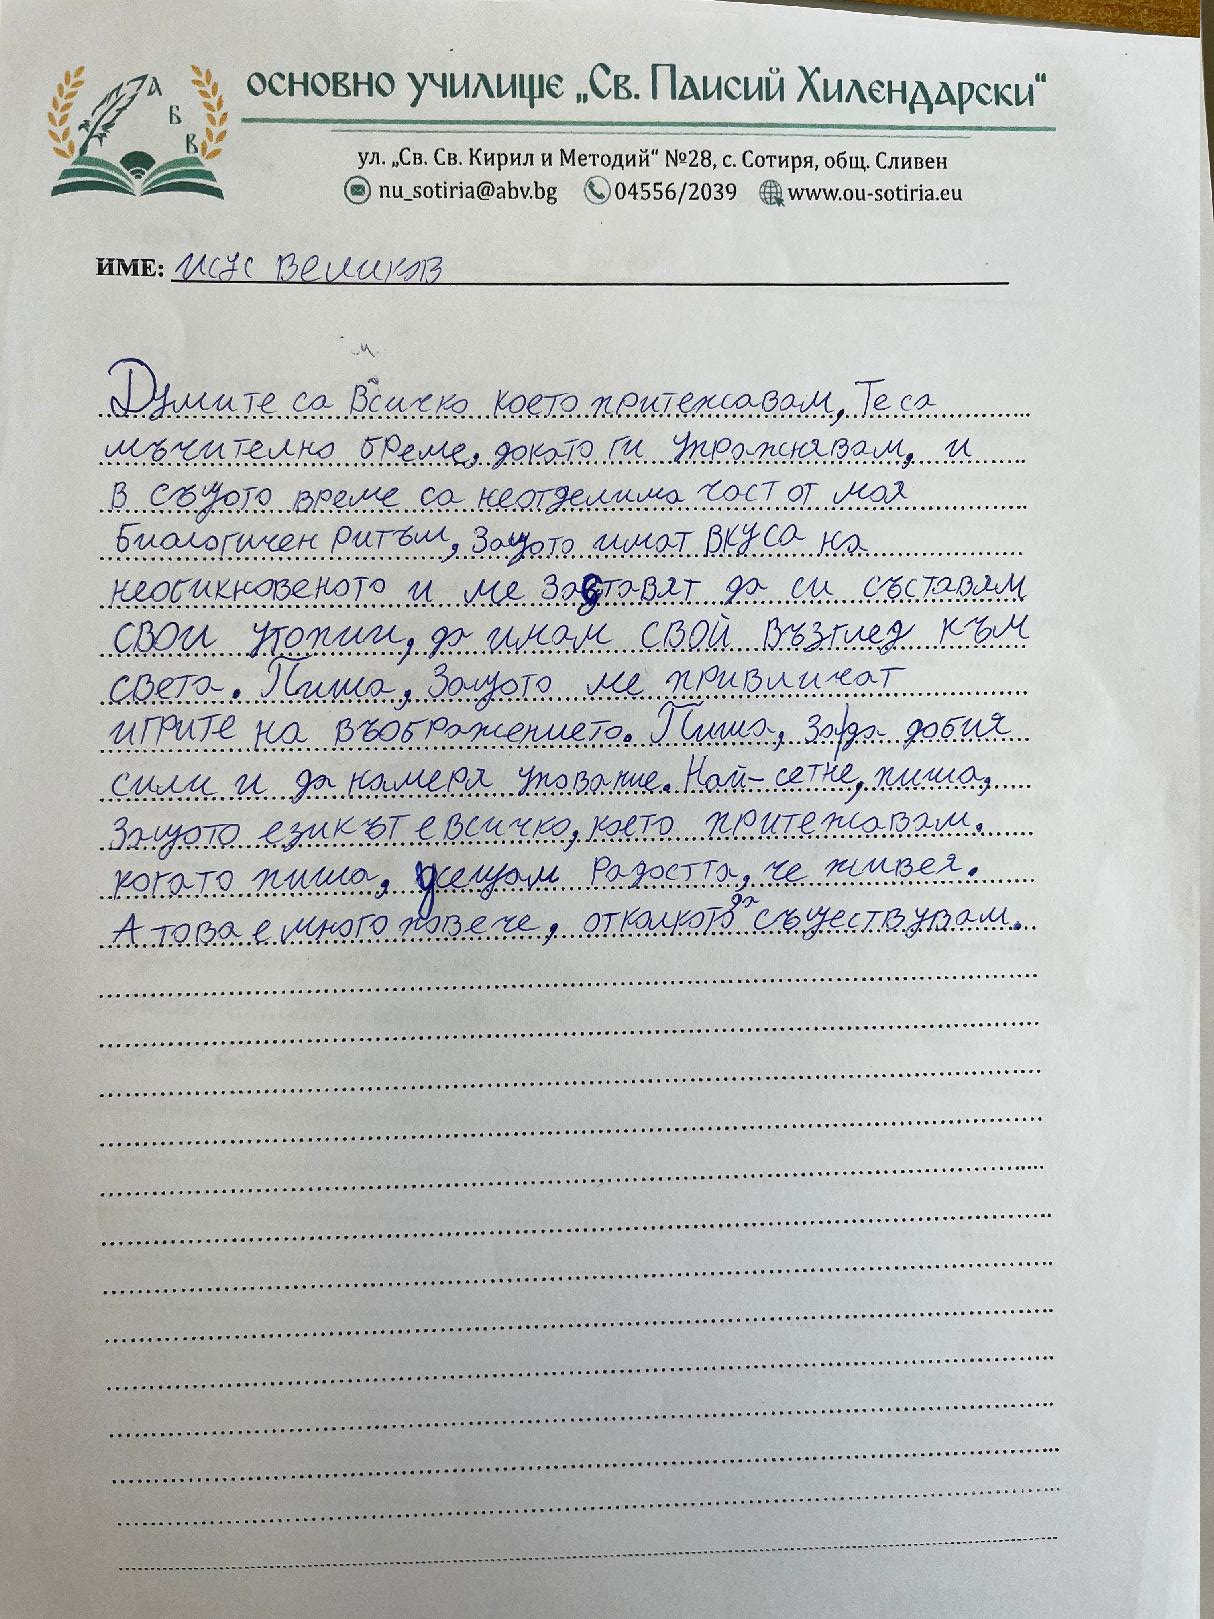 А
Б
В
ОСНОВНО УЧИЛИЩЕ „Св. Паисий Хилендарски“
ул. „Св. Св. Кирил и Методий“ №28, с. Сотиря, общ. Сливен
nu_sotiria@abv.bg 04556/2039 www.ou-sotiria.eu
ИМЕ: исус Великов
Думите са всичко което притежавам, Те са
мъчително бреме, докато ги упражнявам, и
в същото време са неотделима част от моя
биологичен ритъм, защото имат вкуса на
необикновеното и ме заставят да си съставям
свои утопии, да имам свой възглед към
света. Пиша, защото ме привличат
игрите на въображението. Пиша, за да добия
сили и да намеря упование. Най-сетне, пиша,
защото езикът е всичко, което притежавам.
когато пиша, усещам радостта, че живея.
А това е много повече, отколкото да съществувам.